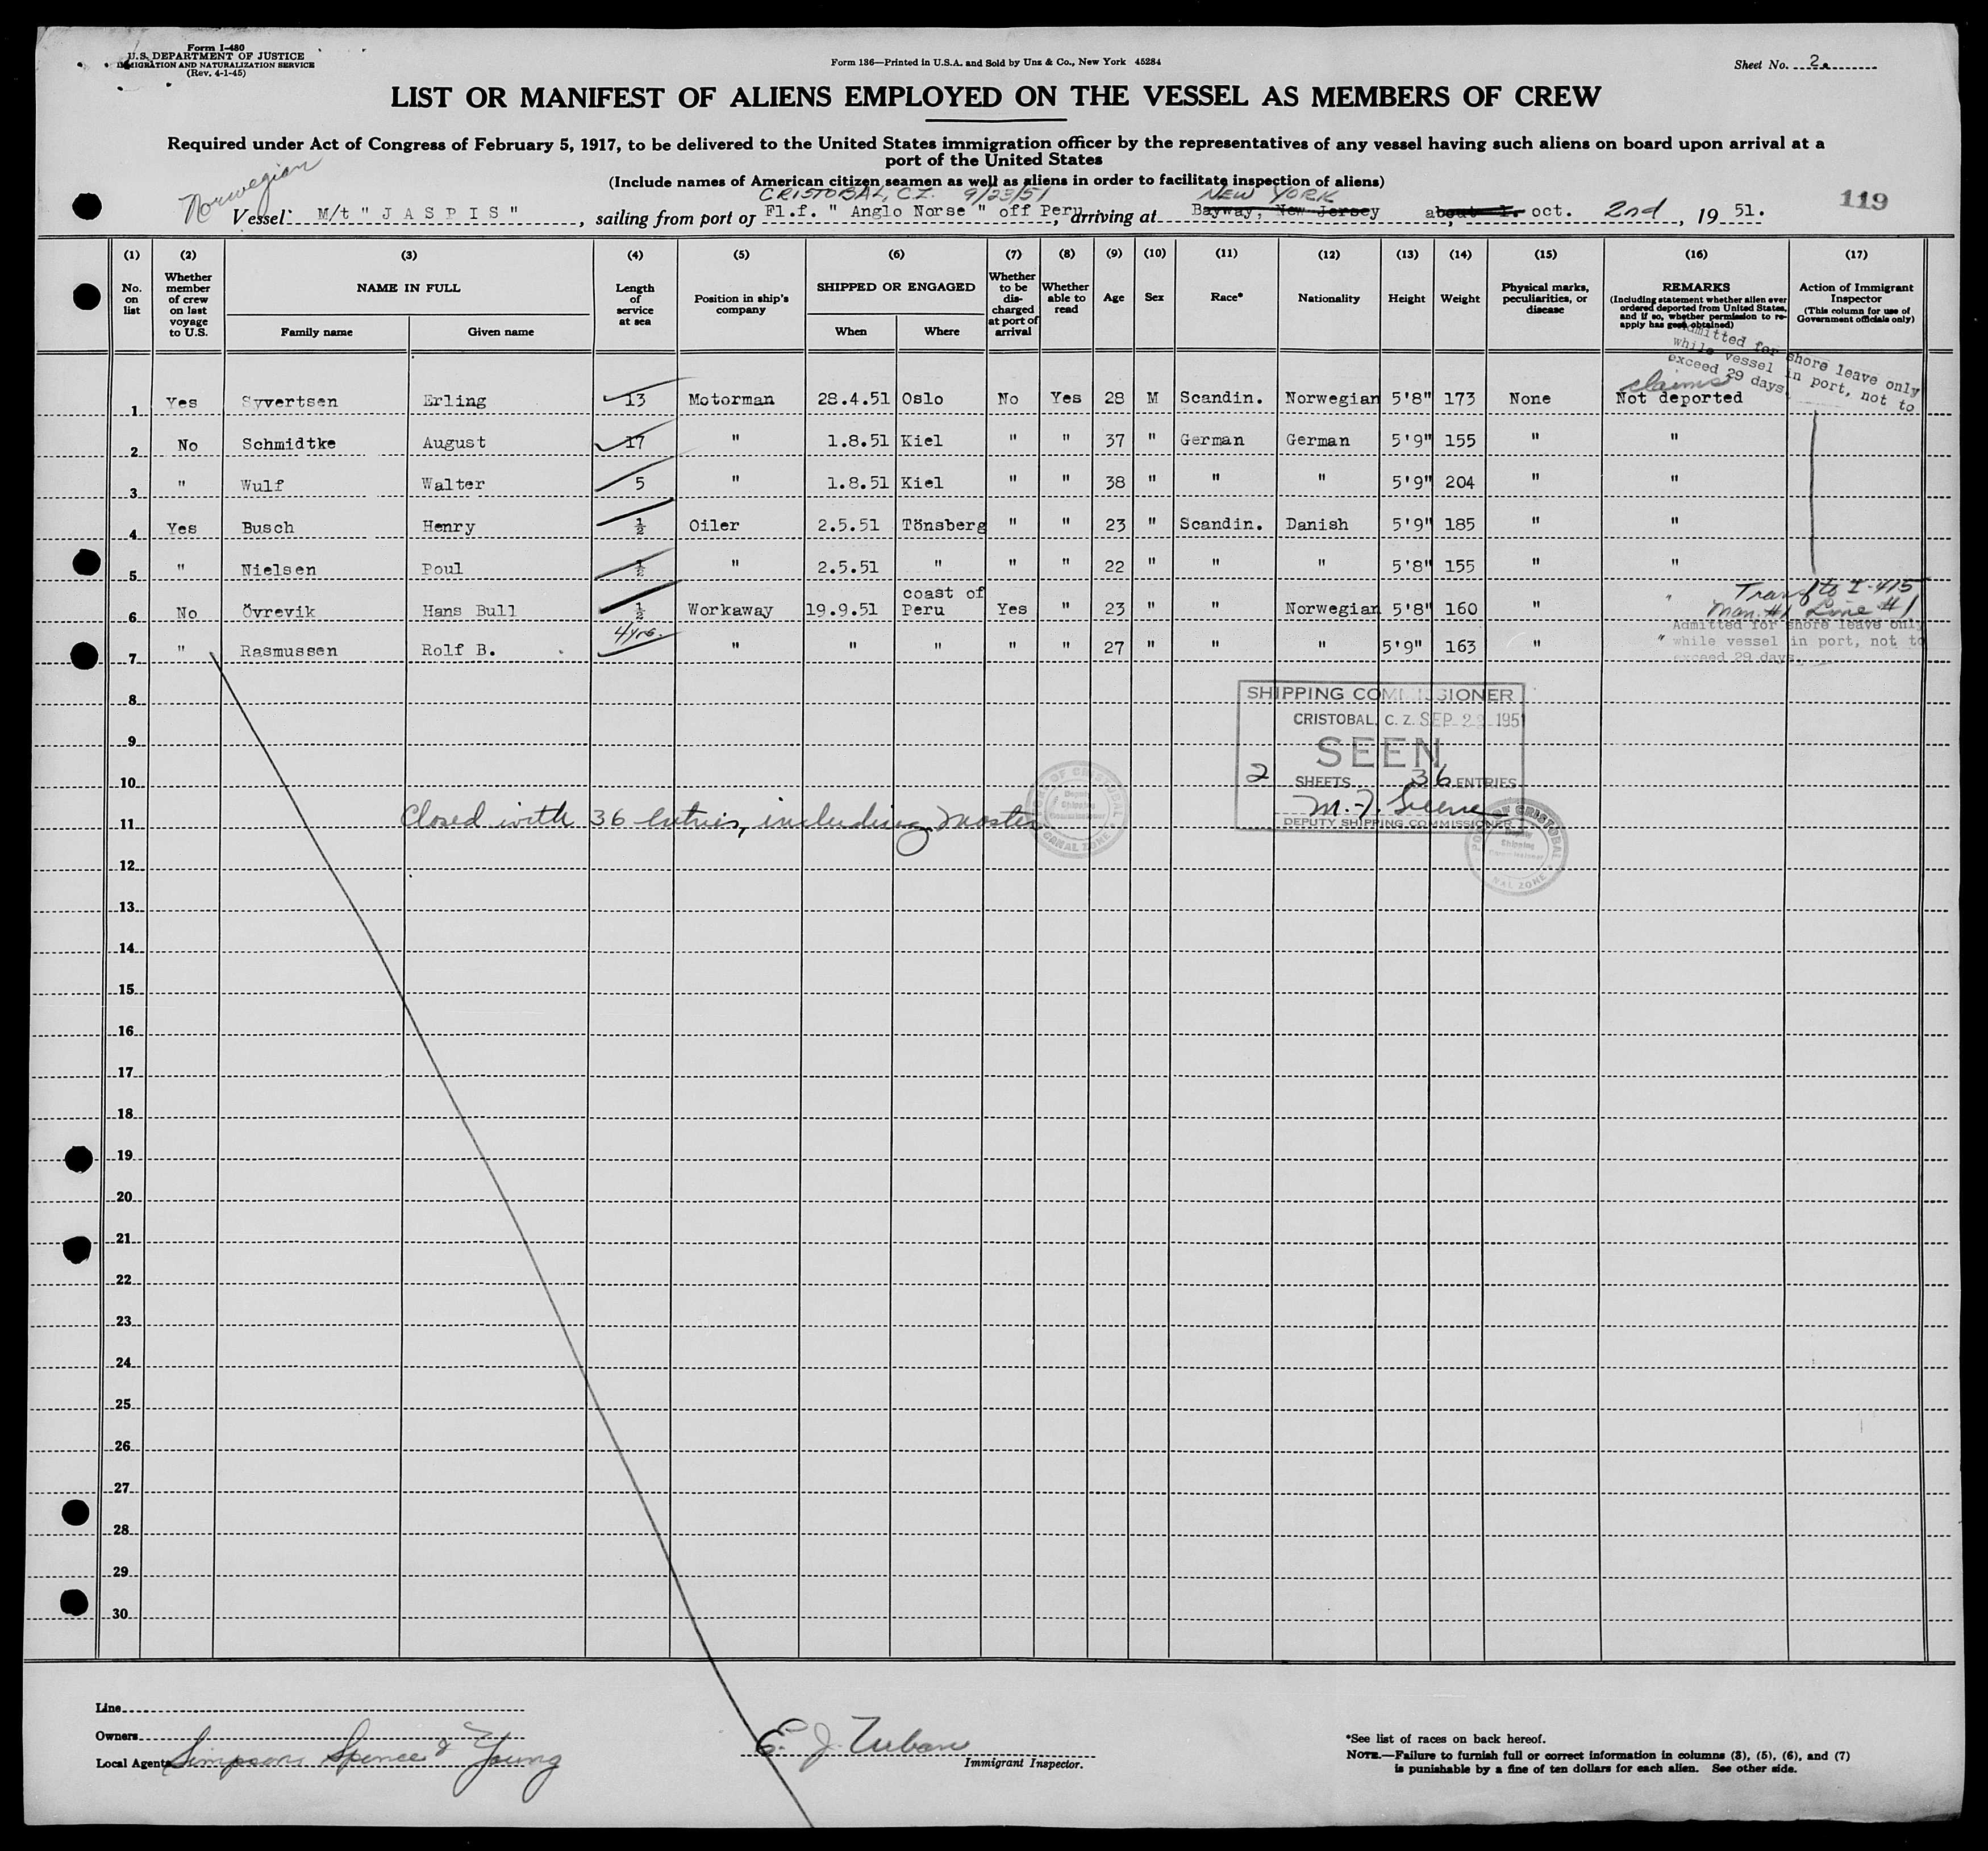 Form I-480
U.S. DEPARTMENT OF JUSTICE
IMMIGRATION AND NATURALIZATION SERVICE
(Rev. 4-1-45)
Form 136—Printed in U.S.A. and Sold by Unz & Co., New York 45284
Sheet No. 2.
LIST OR MANIFEST OF ALIENS EMPLOYED ON THE VESSEL AS MEMBERS OF CREW
Required under Act of Congress of February 5, 1917, to be delivered to the United States immigration officer by the representatives of any vessel having such aliens on board upon arrival at a
port of the United States
(Include names of American citizen seamen as well as aliens in order to facilitate inspection of aliens)
Norwegian
CRISTOBAL, C.Z. 9/23/51 NEW YORK
Vessel M/t " J A S P I S ", sailing from port of Fl.f. " Anglo Norse " off Peru, arriving at Bayway, New Jersey about 1. oct. 2nd, 19 51.
119
(1) (2) (3) (4) (5) (6) (7) (8) (9) (10) (11) (12) (13) (14) (15) (16) (17)
No. on list
Whether member of crew on last voyage to U.S.
NAME IN FULL
Family name Given name
Length of service at sea
Position in ship's company
SHIPPED OR ENGAGED
When Where
Whether to be discharged at port of arrival
Whether able to read
Age
Sex
Race*
Nationality
Height
Weight
Physical marks, peculiarities, or disease
REMARKS
(Including statement whether alien ever ordered deported from United States, and if so, whether permission to reapply has been obtained)
Action of Immigrant Inspector
(This column for use of Government officials only)
Admitted for shore leave only
while vessel in port, not to
exceed 29 days.
claims
1 Yes Syvertsen Erling 13 Motorman 28.4.51 Oslo No Yes 28 M Scandin. Norwegian 5'8" 173 None Not deported
2 No Schmidtke August 17 " 1.8.51 Kiel " " 37 " German German 5'9" 155 " "
3 " Wulf Walter 5 " 1.8.51 Kiel " " 38 " " " 5'9" 204 " "
4 Yes Busch Henry ½ Oiler 2.5.51 Tönsberg " " 23 " Scandin. Danish 5'9" 185 " "
5 " Nielsen Poul ½ " 2.5.51 " " " 22 " " " 5'8" 155 " "
6 No Övrevik Hans Bull ½ Workaway 19.9.51 coast of Peru Yes " 23 " " Norwegian 5'8" 160 " "
Transf to I-415
Man. #1 Line #1
7 " Rasmussen Rolf B. 4 yrs. " " " " " 27 " " " 5'9" 163 " "
Admitted for shore leave only
while vessel in port, not to
exceed 29 days.
8
9
10
11
12
13
14
15
16
17
18
19
20
21
22
23
24
25
26
27
28
29
30
SHIPPING COMMISSIONER
CRISTOBAL, C. Z. SEP 1951
SEEN
2 SHEETS 36 ENTRIES
DEPUTY SHIPPING COMMISSIONER
Closed with 36 entries, including Master
PORT OF CRISTOBAL
Deputy
Shipping
Commissioner
CANAL ZONE
PORT OF CRISTOBAL
Deputy
Shipping
Commissioner
CANAL ZONE
Line
Owners
Local Agents Simpson, Spence & Young
E. J.
Immigrant Inspector.
*See list of races on back hereof.
NOTE.—Failure to furnish full or correct information in columns (3), (5), (6), and (7)
is punishable by a fine of ten dollars for each alien. See other side.